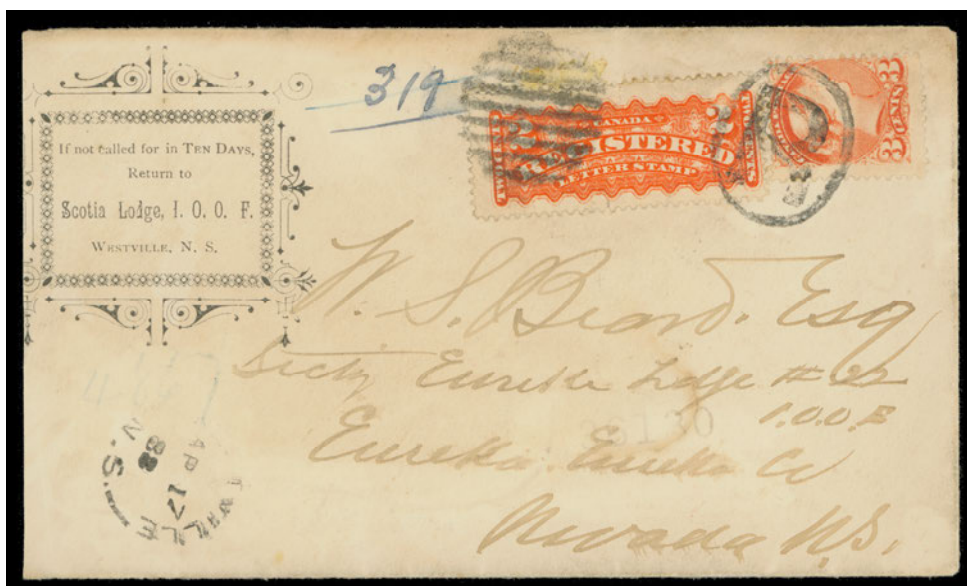 If not called for in TEN DAYS,
Return to
Scotia Lodge, I. O. O. F.
WESTVILLE, N. S.
319
CANADA
2 REGISTERED 2
LETTER STAMP
TWO CENTS
3 CENTS 3
W. S. Beard. Esq
Secty Eureka Lodge # 22
I.O.O.F
Eureka Eureka Co
Nevada U.S.
TVILLE
AP 17
88
N.S.